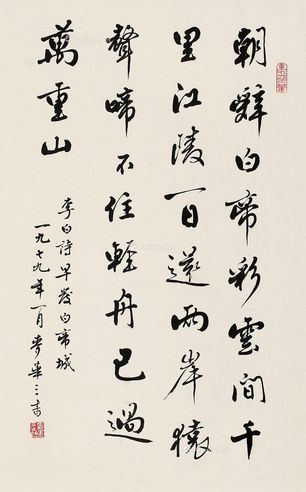 朝辭白帝彩雲間千
里江陵一日還兩岸猿
聲啼不住輕舟已過
萬重山
李白詩早發白帝城
一九七九年一月麥華三書